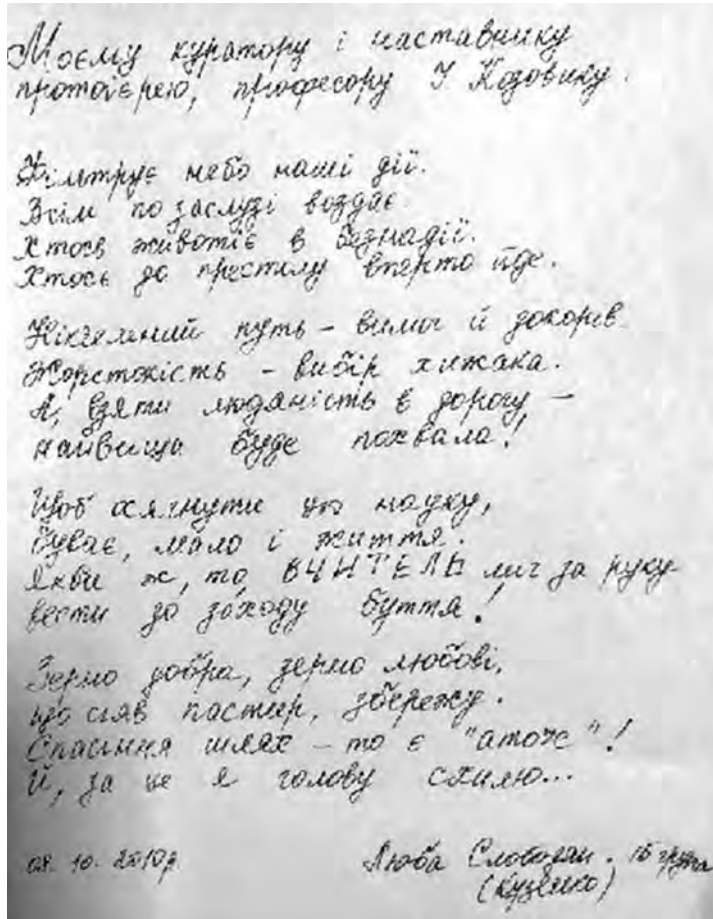 Моєму куратору і наставнику
протоієрею, професору І Козовику.
Фільтрує небо наші дії.
Всім по заслузі воздає.
Хтось животіє в безнадії.
Хтось до престолу вперто йде.
Нікчемний путь – вимог й докорів
Жорстокість – вибір хижака.
А, взяти людяність в дорогу –
найвища буде похвала!
Щоб осягнути цю науку,
буває, мало і життя.
Якби ж, то ВЧИТЕЛЬ міг за руку
вести до заходу буття!
Зерно добра, зерно любові,
що сіяв пастир, збережу.
Спасіння шлях – то є "атож"!
Й, за це я голову схилю...
08. 10. 2010р. Люба 16 група
(Кузенко)